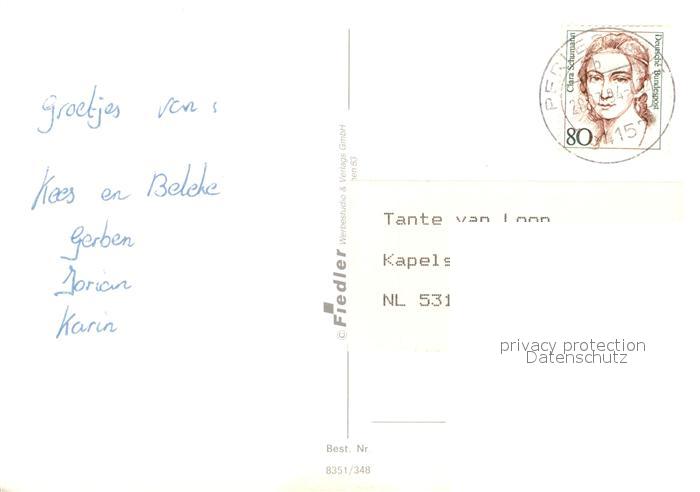 Groetjes van :
Kees en Beleke
Gerben
Jorian
Karin
© Fiedler Werbestudio & Verlags GmbH
Best. Nr.
8351/348
Clara Schumann
Deutsche Bundespost
80
Tante van Loon
Kapels
NL 531
privacy protection
Datenschutz